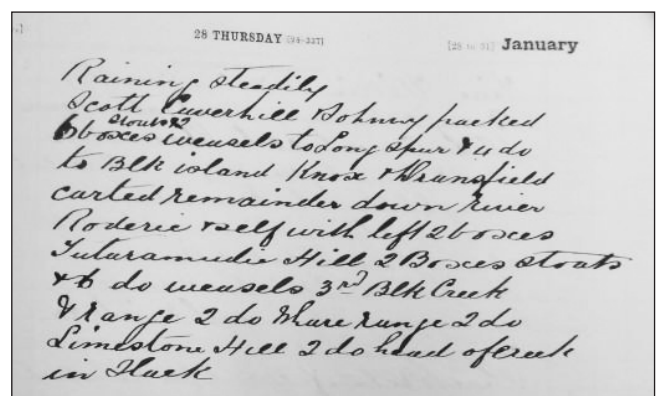 28 THURSDAY [28-337]
[28 to 31] January
Raining steadily
Scott Caverhill & Johnny packed
Stoats
6 boxes weasels to Long spur & 4 do
to Blk island Knox &
carted remainder down river
Roderic & self with left 2 boxes
Hill 2 Boxes stoats
& 6 do weasels 3rd Blk Creek
& range 2 do range 2 do
Limestone Hill 2 do head of creek
in